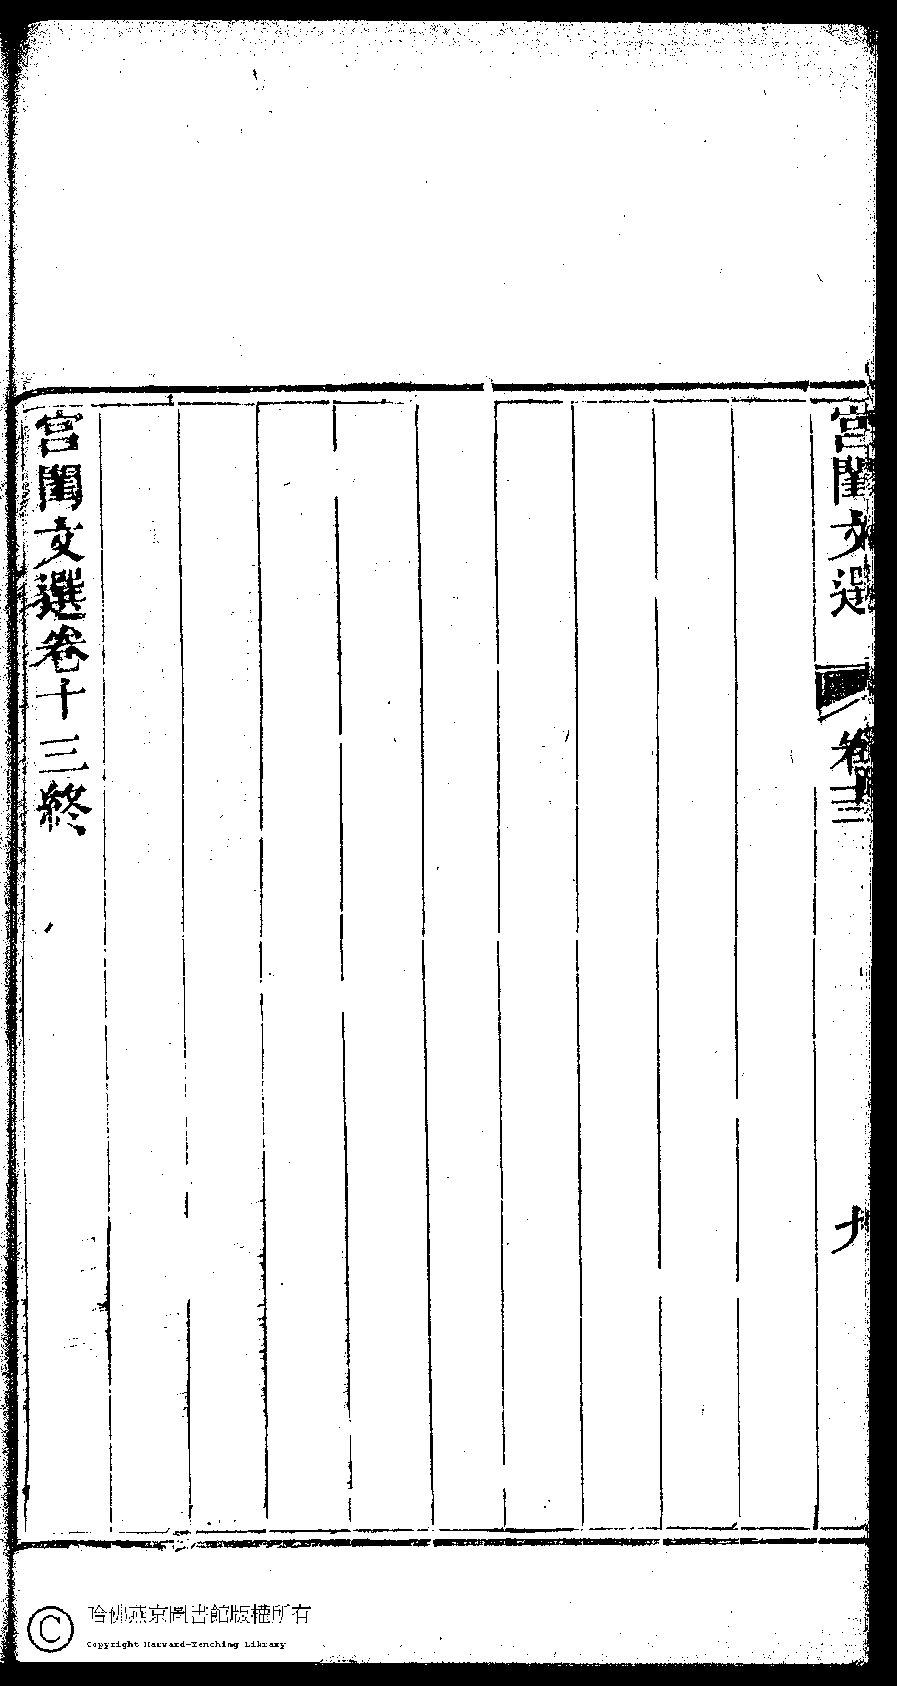 宮閨文選
卷十三
九
宮閨文選卷十三終
哈佛燕京圖書館版權所有
Copyright Harvard-Yenching Library